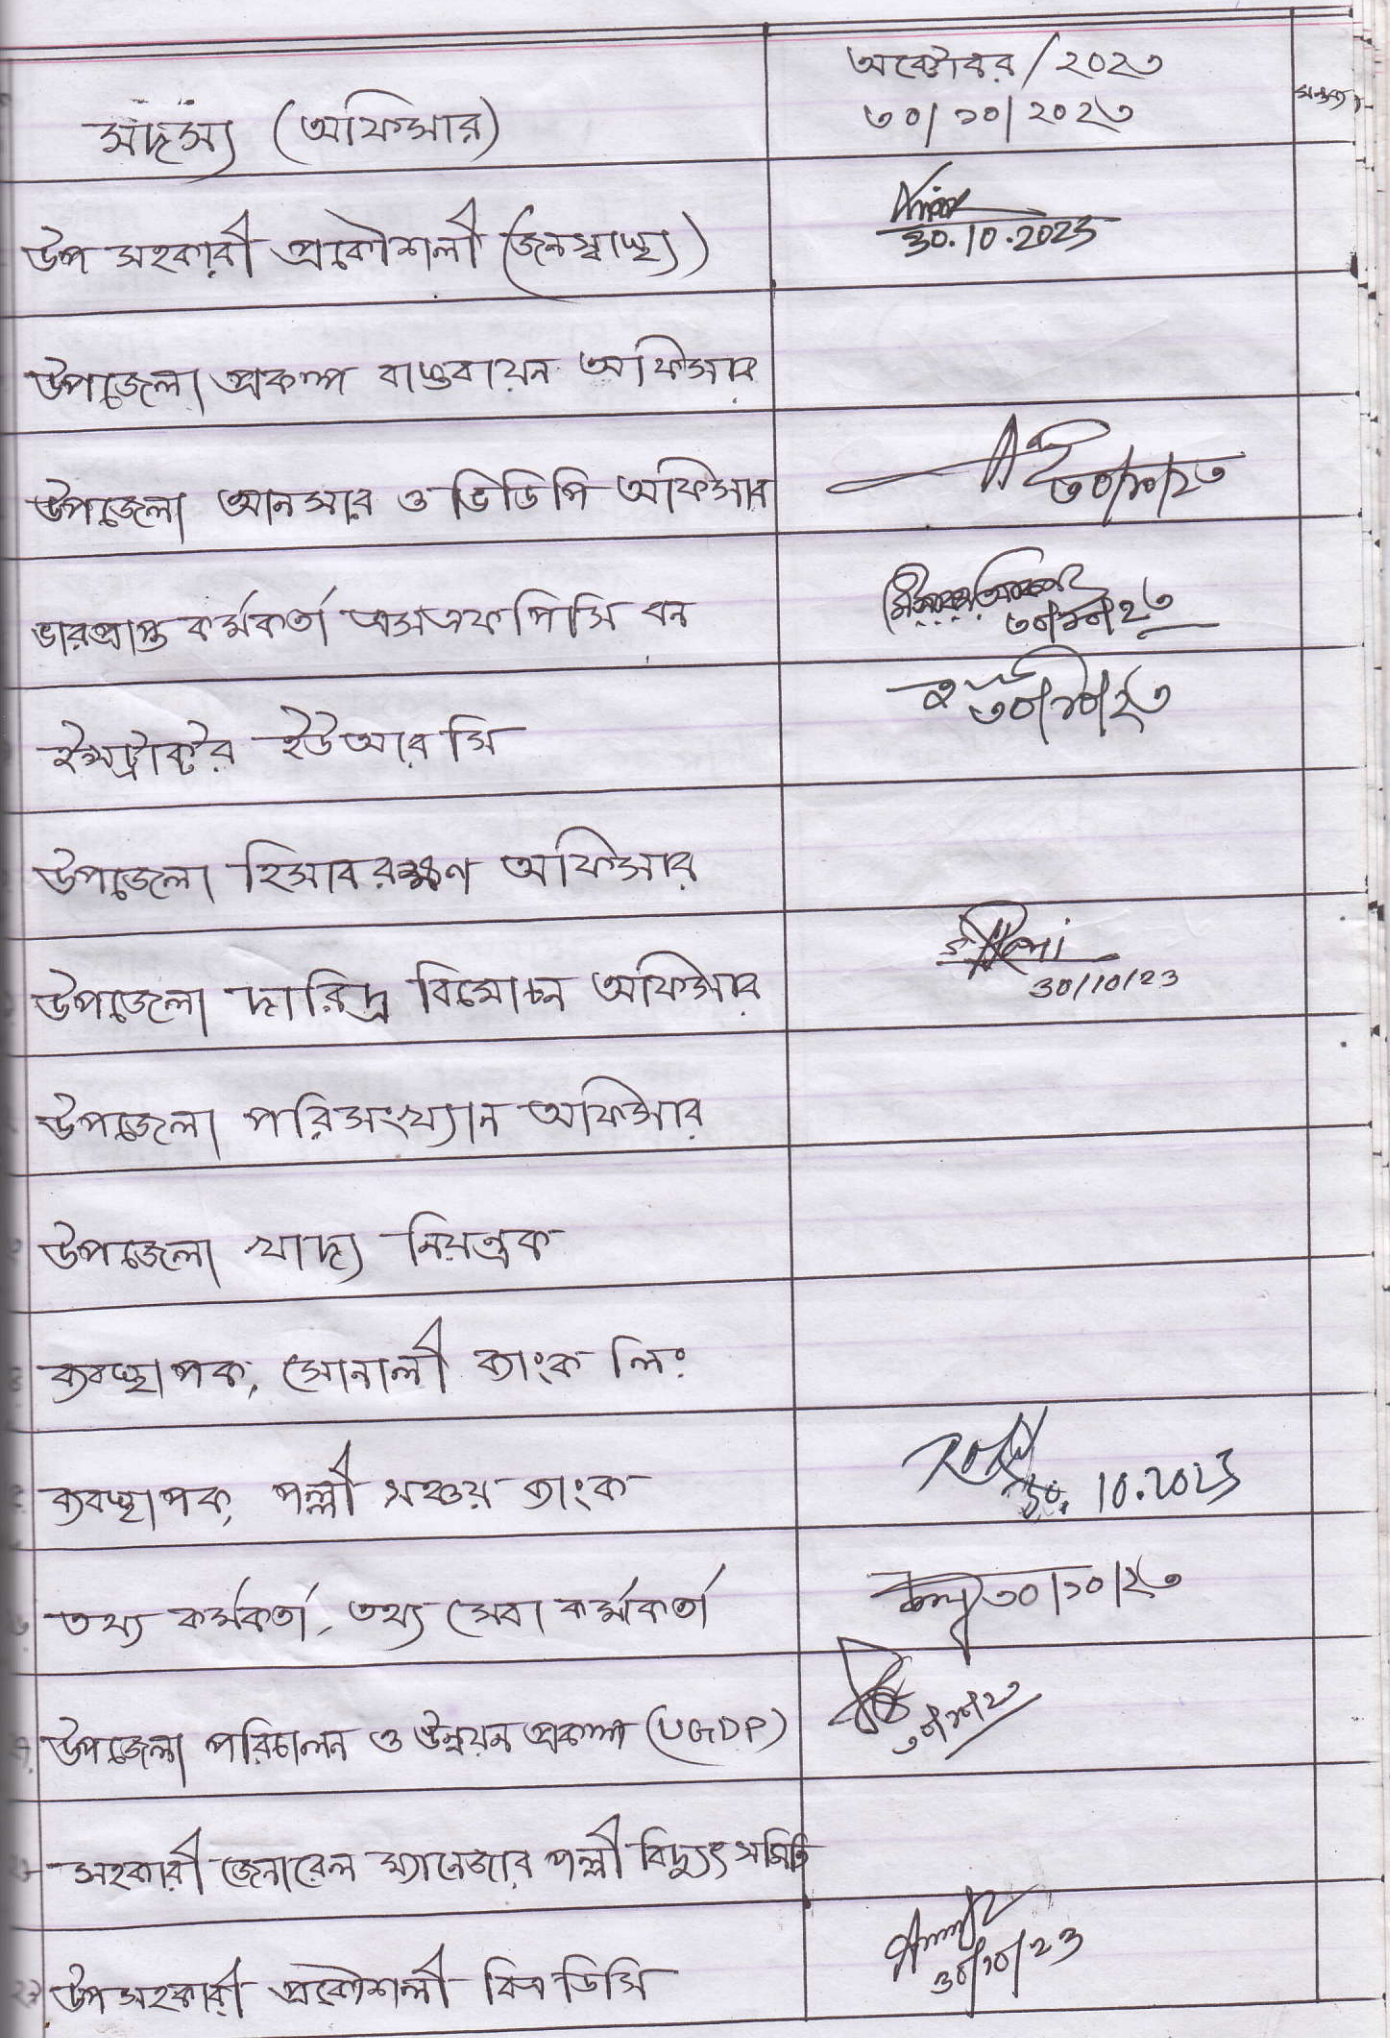 অক্টোবর/২০২৩
সদস্য (অফিসার)
৩০/১০/২০২৩
মন্তব্য
উপ সহকারী প্রকৌশলী (জনস্বাস্থ্য)
30.10.2023
উপজেলা প্রকল্প বাস্তবায়ন অফিসার
উপজেলা আনসার ও ভিডিপি অফিসার
৩০/১০/২৩
ভারপ্রাপ্ত কর্মকর্তা এসএফপিসি বন
৩০/১০/২৩
ইন্সট্রাক্টর ইউআরসি
৩০/১০/২৩
উপজেলা হিসাবরক্ষণ অফিসার
উপজেলা দারিদ্র বিমোচন অফিসার
30/10/23
উপজেলা পরিসংখ্যান অফিসার
উপজেলা খাদ্য নিয়ন্ত্রক
ব্যবস্থাপক, সোনালী ব্যাংক লিঃ
ব্যবস্থাপক, পল্লী সঞ্চয় ব্যাংক
30.10.2023
তথ্য কর্মকর্তা, তথ্য সেবা কর্মকর্তা
৩০/১০/২৩
উপজেলা পরিচালন ও উন্নয়ন প্রকল্প (UGDP)
৩০/১০/২৩
সহকারী জেনারেল ম্যানেজার পল্লী বিদ্যুৎ সমিতি
উপ সহকারী প্রকৌশলী বিএডিসি
30/10/23